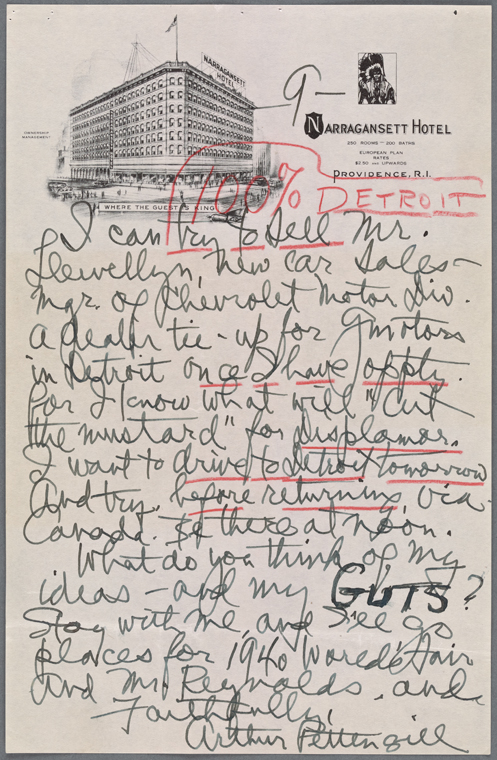 NARRAGANSETT HOTEL
9-
OWNERSHIP MANAGEMENT
NARRAGANSETT HOTEL
250 ROOMS - 200 BATHS
EUROPEAN PLAN
RATES
$2.50 AND UPWARDS
PROVIDENCE, R.I.
WHERE THE GUEST IS KING
100% DETROIT
I can try to sell Mr.
Llewellyn, new car sales-
mgr. of Chevrolet Motor Div.
a dealer tie-up for Gmotors
in Detroit once I have opply.
For I know what will "cut
the mustard" for Displamor.
I want to drive to Detroit tomorrow
And try, before returning, via
Canada. If there at noon.
What do you think of my
ideas - and my GUTS?
Stay with me, and I'll go
places for 1940 World's Fair
and Mr. Reynolds. and
Faithfully,
Arthur Pettengill